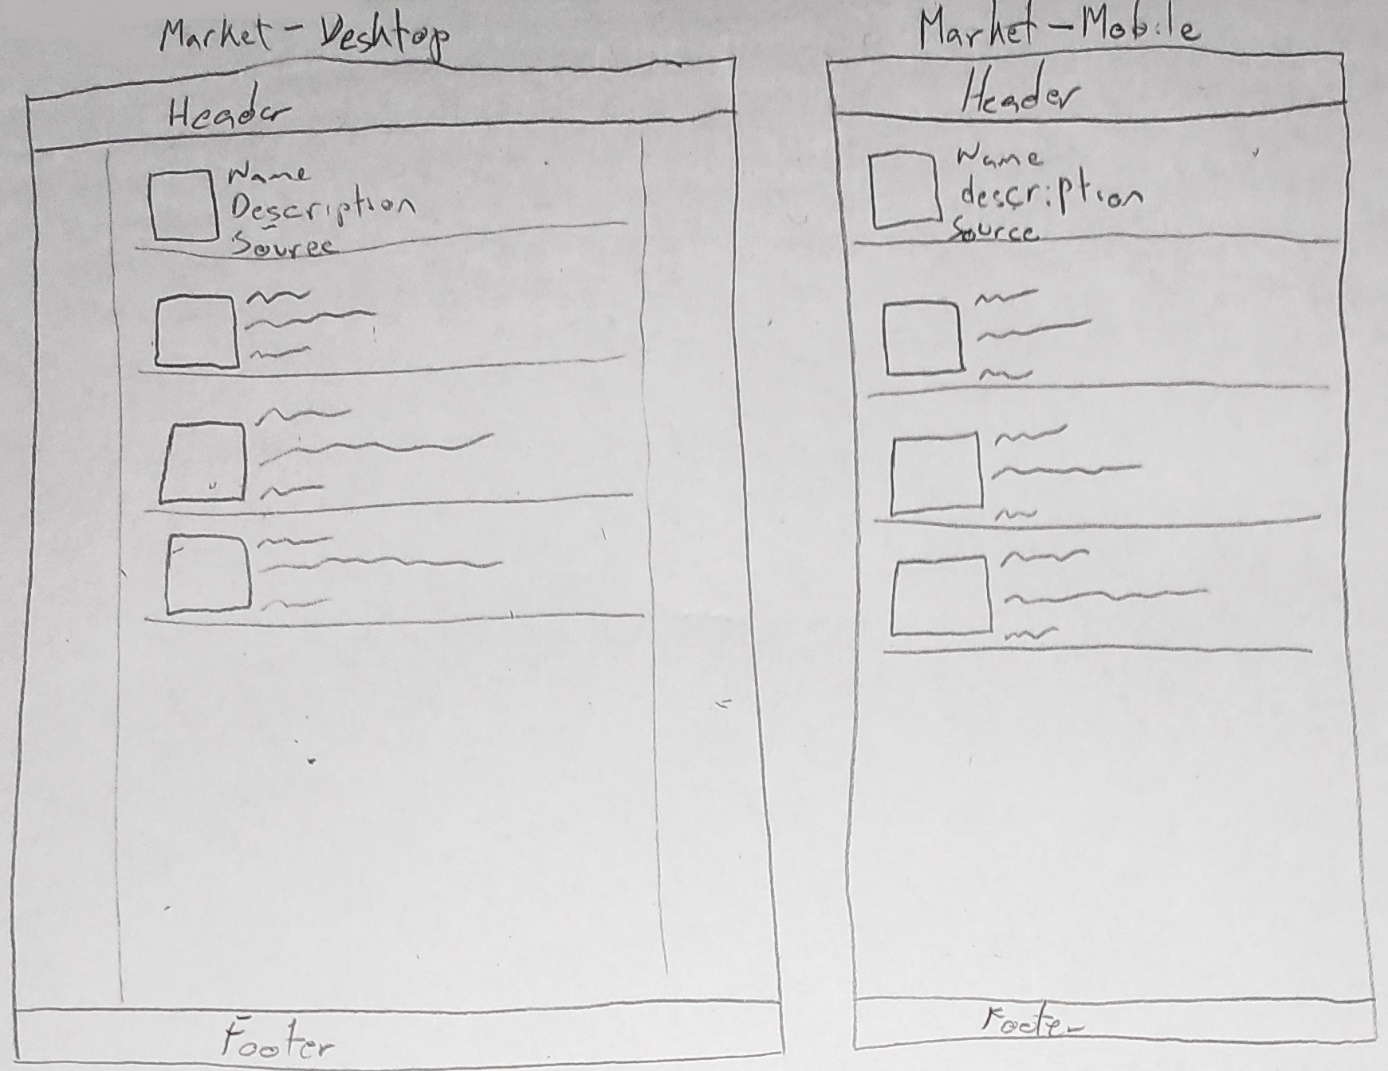 Market - Desktop
Header
Name
Description
Source
Footer
Market - Mobile
Header
Name
description
Source
Footer